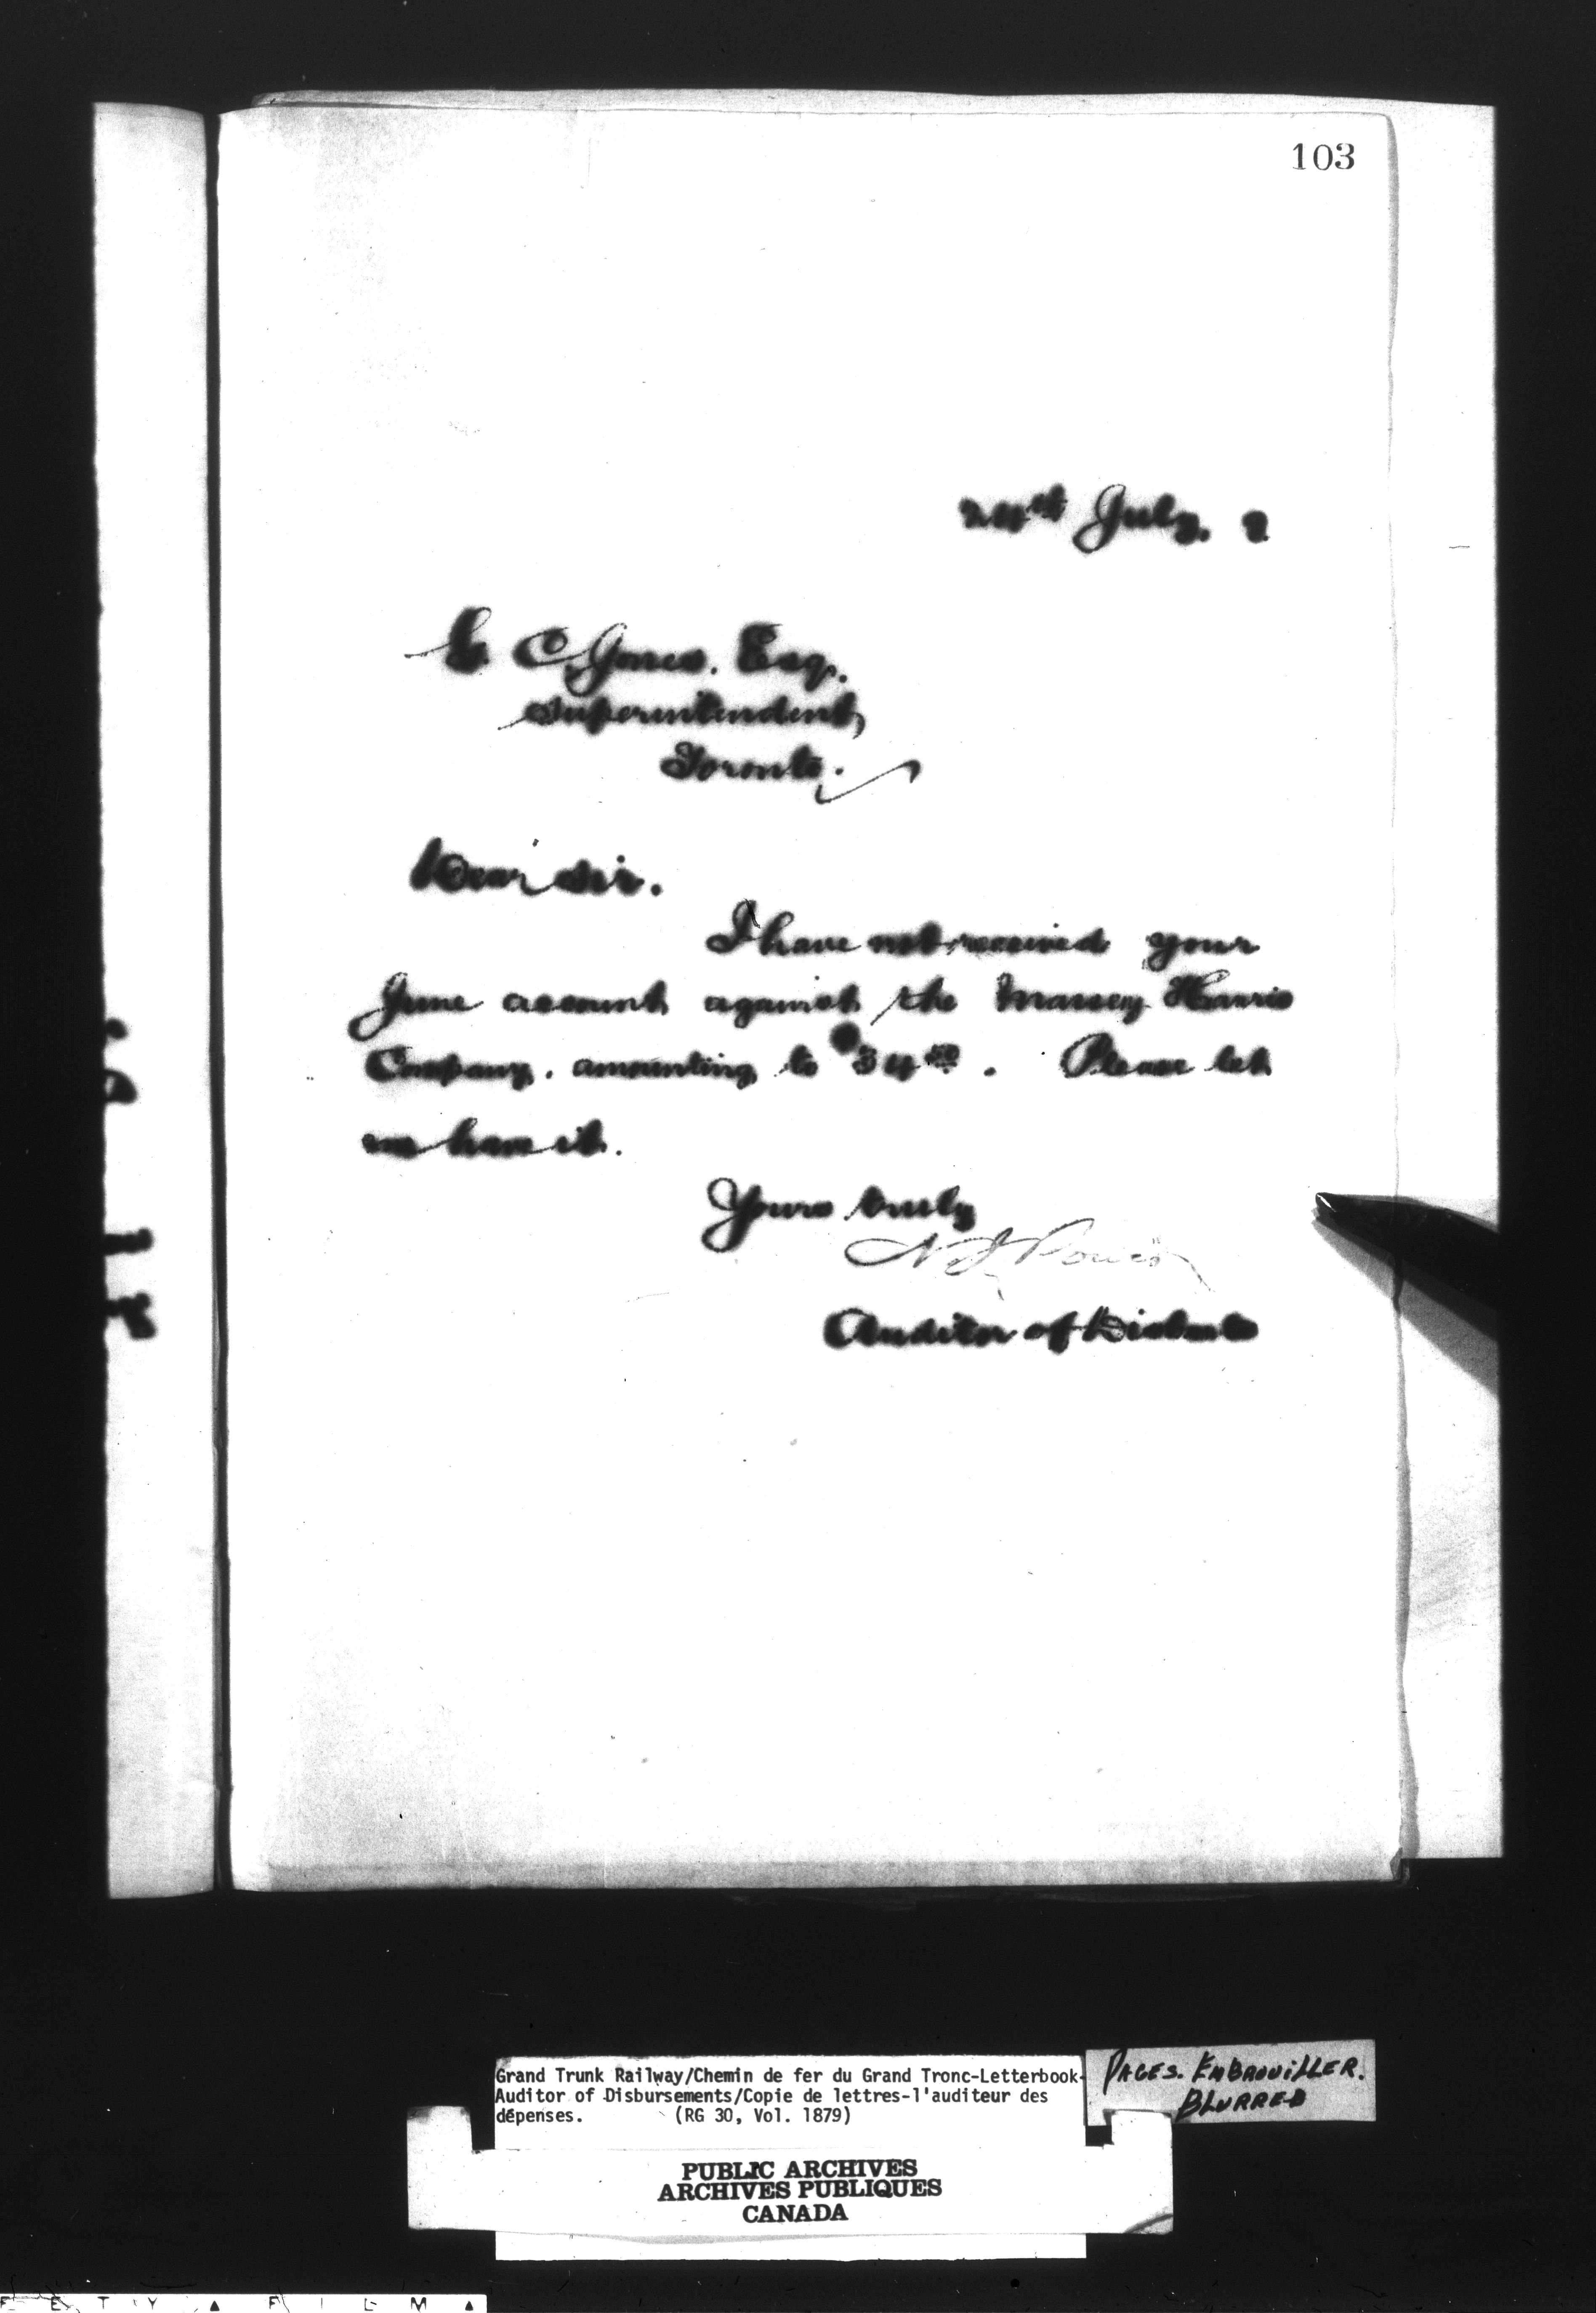 103
24th July. 2
C. Jones. Esq.
Superintendent,
Toronto.
Dear Sir.
I have not received your
June account against the Massey Harris
Company. amounting to $34
Please let
me have it.
Yours truly
N J Power
Auditor of Disbmts
Grand Trunk Railway/Chemin de fer du Grand Tronc-Letterbook-
Auditor of Disbursements/Copie de lettres-l'auditeur des
dépenses. (RG 30, Vol. 1879)
PAGES. EMBROUILLER.
BLURRED
PUBLIC ARCHIVES
ARCHIVES PUBLIQUES
CANADA
E T Y ▲ F I L M ▲